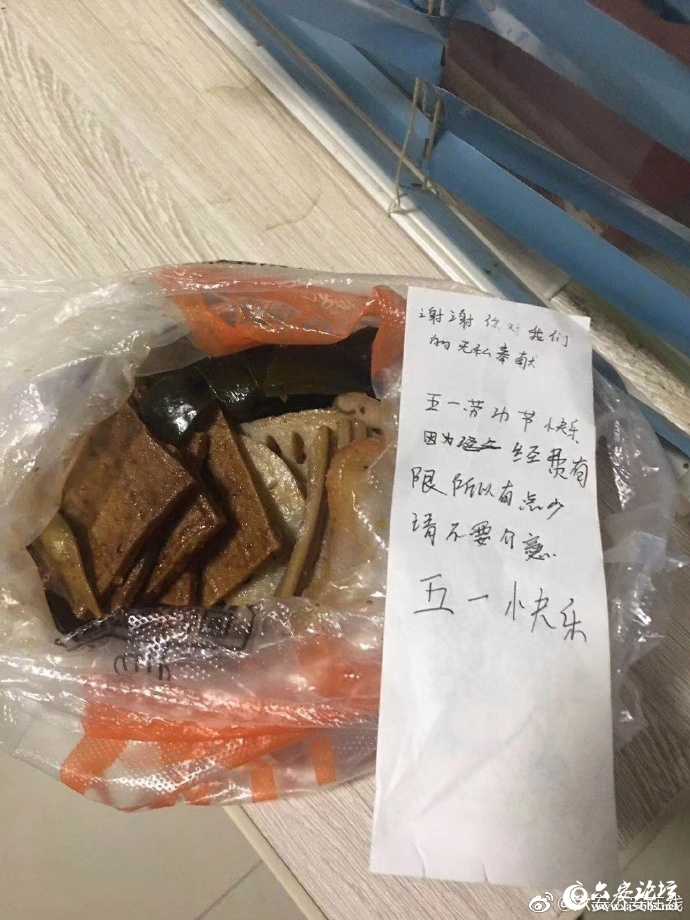 谢谢你对我们
的无私奉献
五一劳动节快乐
因为 经费有
限所以有点少
请不要介意
五一快乐
六安论坛